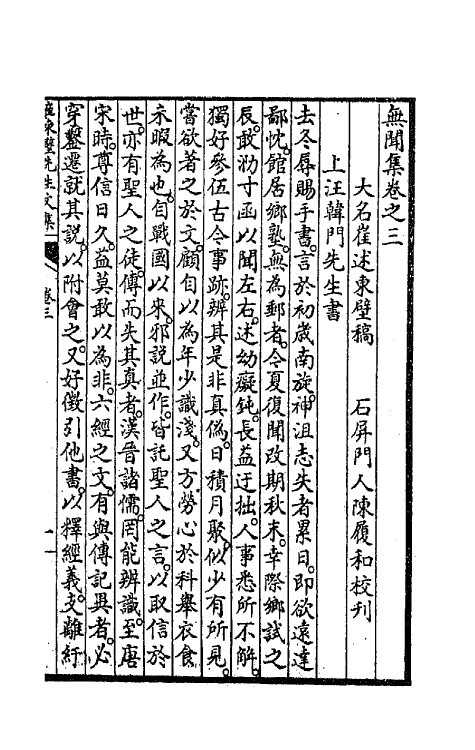 無聞集卷之三
大名崔述東壁稿　石屏門人陳履和校刊
上汪韓門先生書
去冬辱賜手書。言於初歲南旋。神沮志失者累日。即欲遠達
鄙忱。館居鄉塾。無為郵者。今夏復聞改期秋末。幸際鄉試之
辰。敢泐寸函以聞左右。述幼癡鈍。長益迂拙。人事悉所不解。
獨好參伍古今事跡。辨其是非真偽。日積月聚。似少有所見。
嘗欲著之於文。顧自以為年少識淺。又方勞心於科舉衣食
未暇為也。自戰國以來。邪說並作。皆託聖人之言。以取信於
世。亦有聖人之徒。傳而失其真者。漢晉諸儒。罔能辨識。至唐
宋時。尊信日久。益莫敢以為非。六經之文。有與傳記異者。必
穿鑿遷就其說。以附會之。又好徵引他書。以釋經義。支離紆
崔東壁先生文集　卷三　一